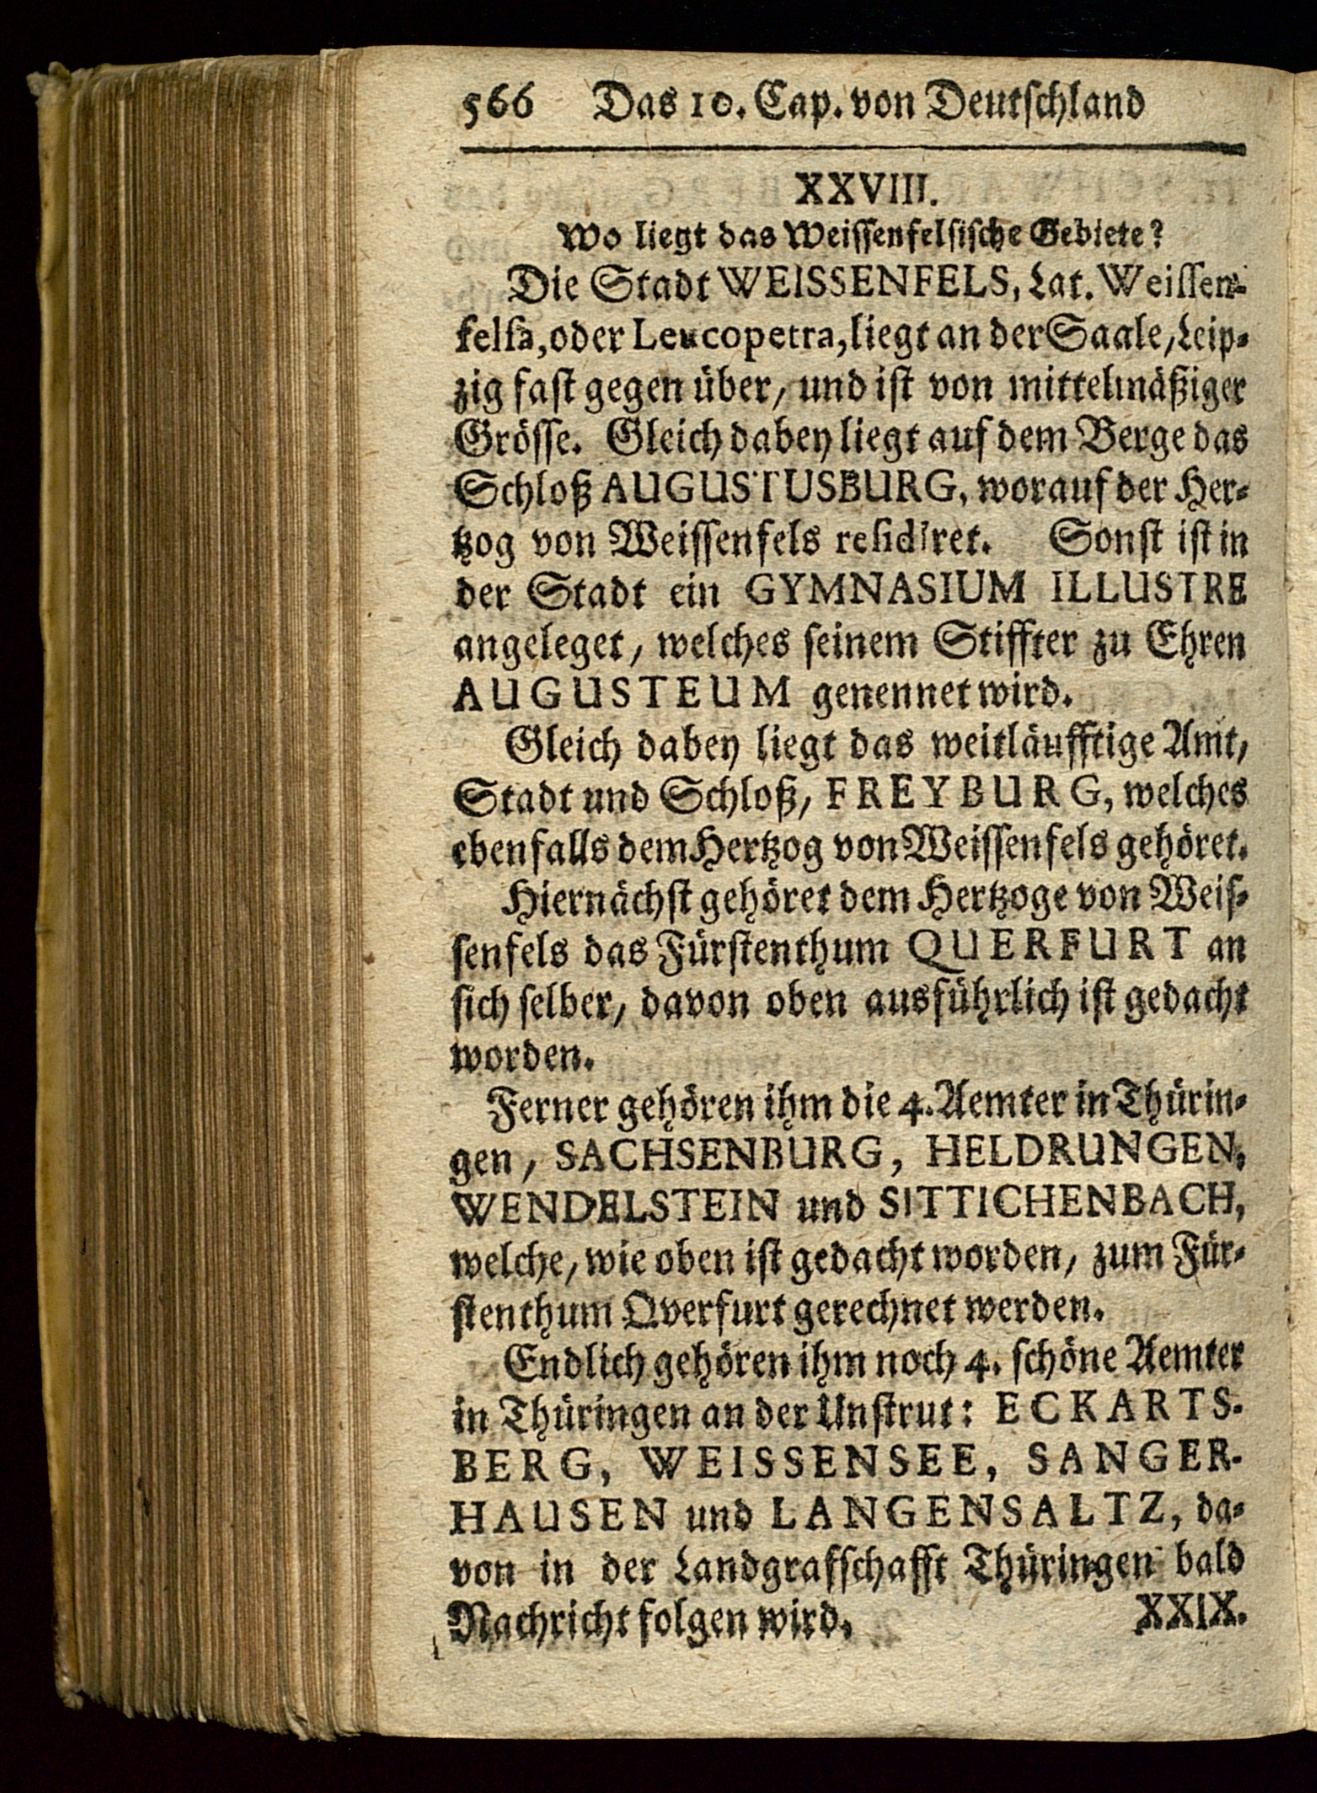 566 Das 10. Cap. von Deutschland
XXVIII.
Wo liegt das Weissenfelsische Gebiete?
Die Stadt WEISSENFELS, Lat. Weissen-
felsa, oder Leucopetra, liegt an der Saale, Leip-
zig fast gegen über, und ist von mittelmäßiger
Grösse. Gleich dabey liegt auf dem Berge das
Schloß AUGUSTUSBURG, worauf der Her-
tzog von Weissenfels residiret. Sonst ist in
der Stadt ein GYMNASIUM ILLUSTRE
angeleget, welches seinem Stiffter zu Ehren
AUGUSTEUM genennet wird.
Gleich dabey liegt das weitläufftige Amt,
Stadt und Schloß, FREYBURG, welches
ebenfalls dem Hertzog von Weissenfels gehöret.
Hiernächst gehöret dem Hertzoge von Weis-
senfels das Fürstenthum QUERFURT an
sich selber, davon oben ausführlich ist gedacht
worden.
Ferner gehören ihm die 4. Aemter in Thürin-
gen, SACHSENBURG, HELDRUNGEN,
WENDELSTEIN und SITTICHENBACH,
welche, wie oben ist gedacht worden, zum Für-
stenthum Qverfurt gerechnet werden.
Endlich gehören ihm noch 4. schöne Aemter
in Thüringen an der Unstrut: ECKARTS-
BERG, WEISSENSEE, SANGER-
HAUSEN und LANGENSALTZ, da-
von in der Landgrafschafft Thüringen bald
Nachricht folgen wird. XXIX.